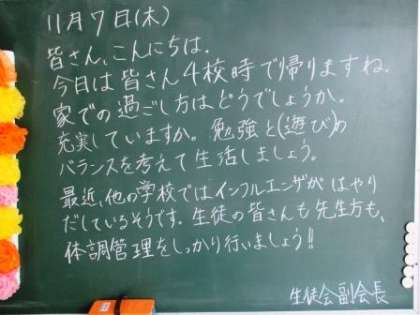 11月7日(木)
皆さん、こんにちは。
今日は皆さん4校時で帰りますね。
家での過ごし方はどうでしょうか。
充実していますか。勉強と(遊び)の
バランスを考えて生活しましょう。
最近、他の学校ではインフルエンザが はやり
だしているそうです。生徒の皆さんも先生方も、
体調管理をしっかり行いましょう!!
生徒会副会長